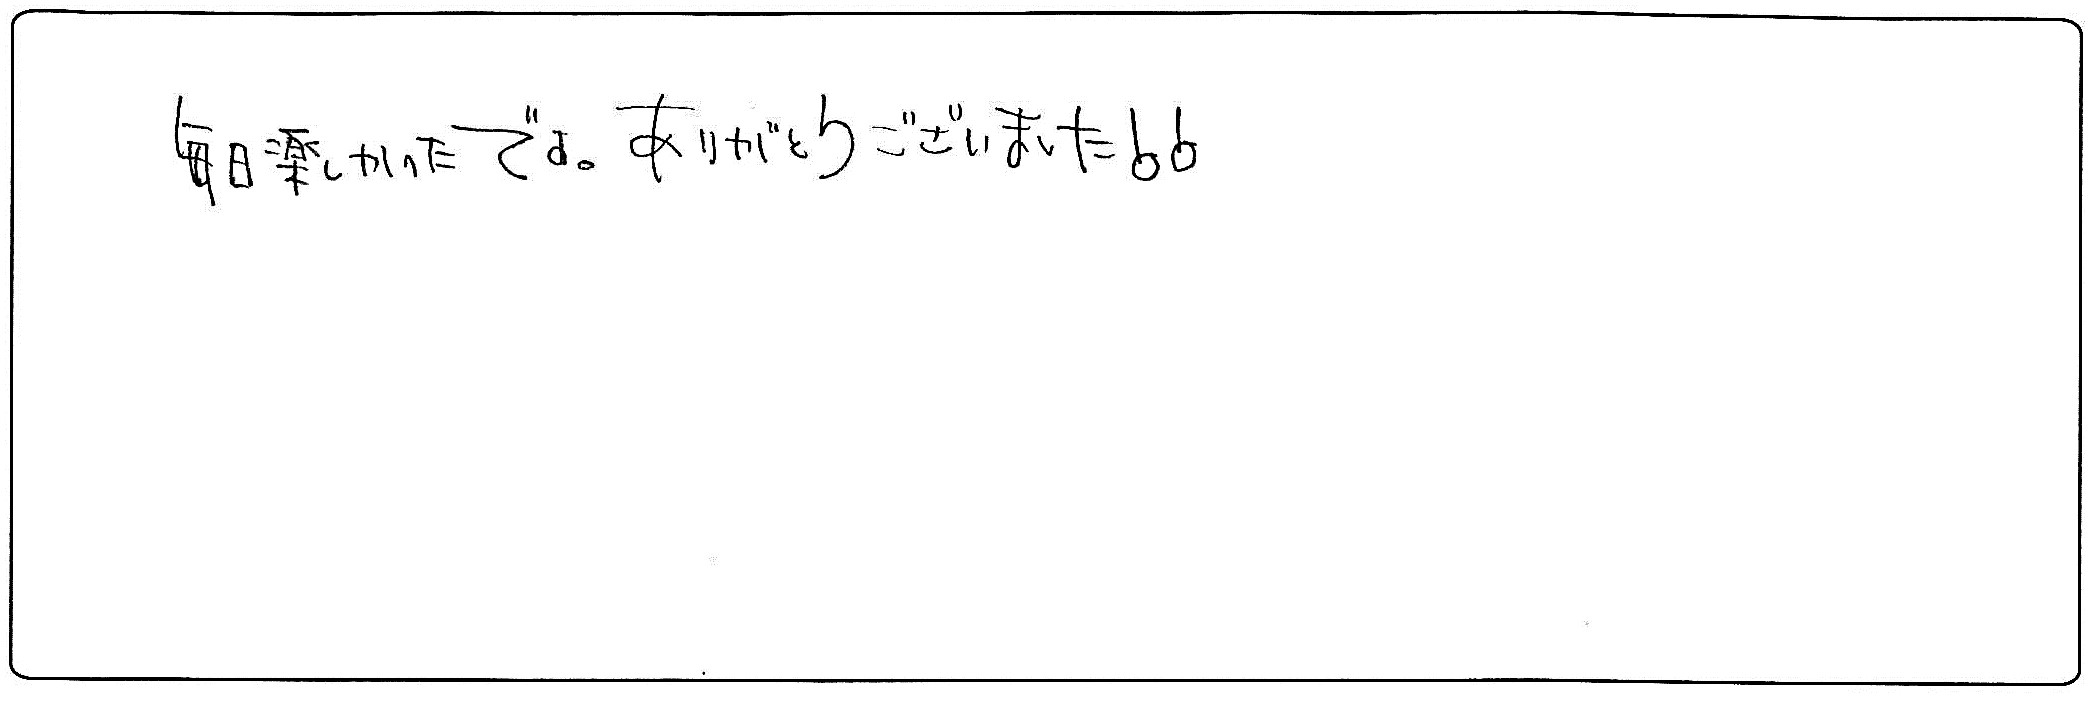 毎日楽しかったです。ありがとうございましたbb